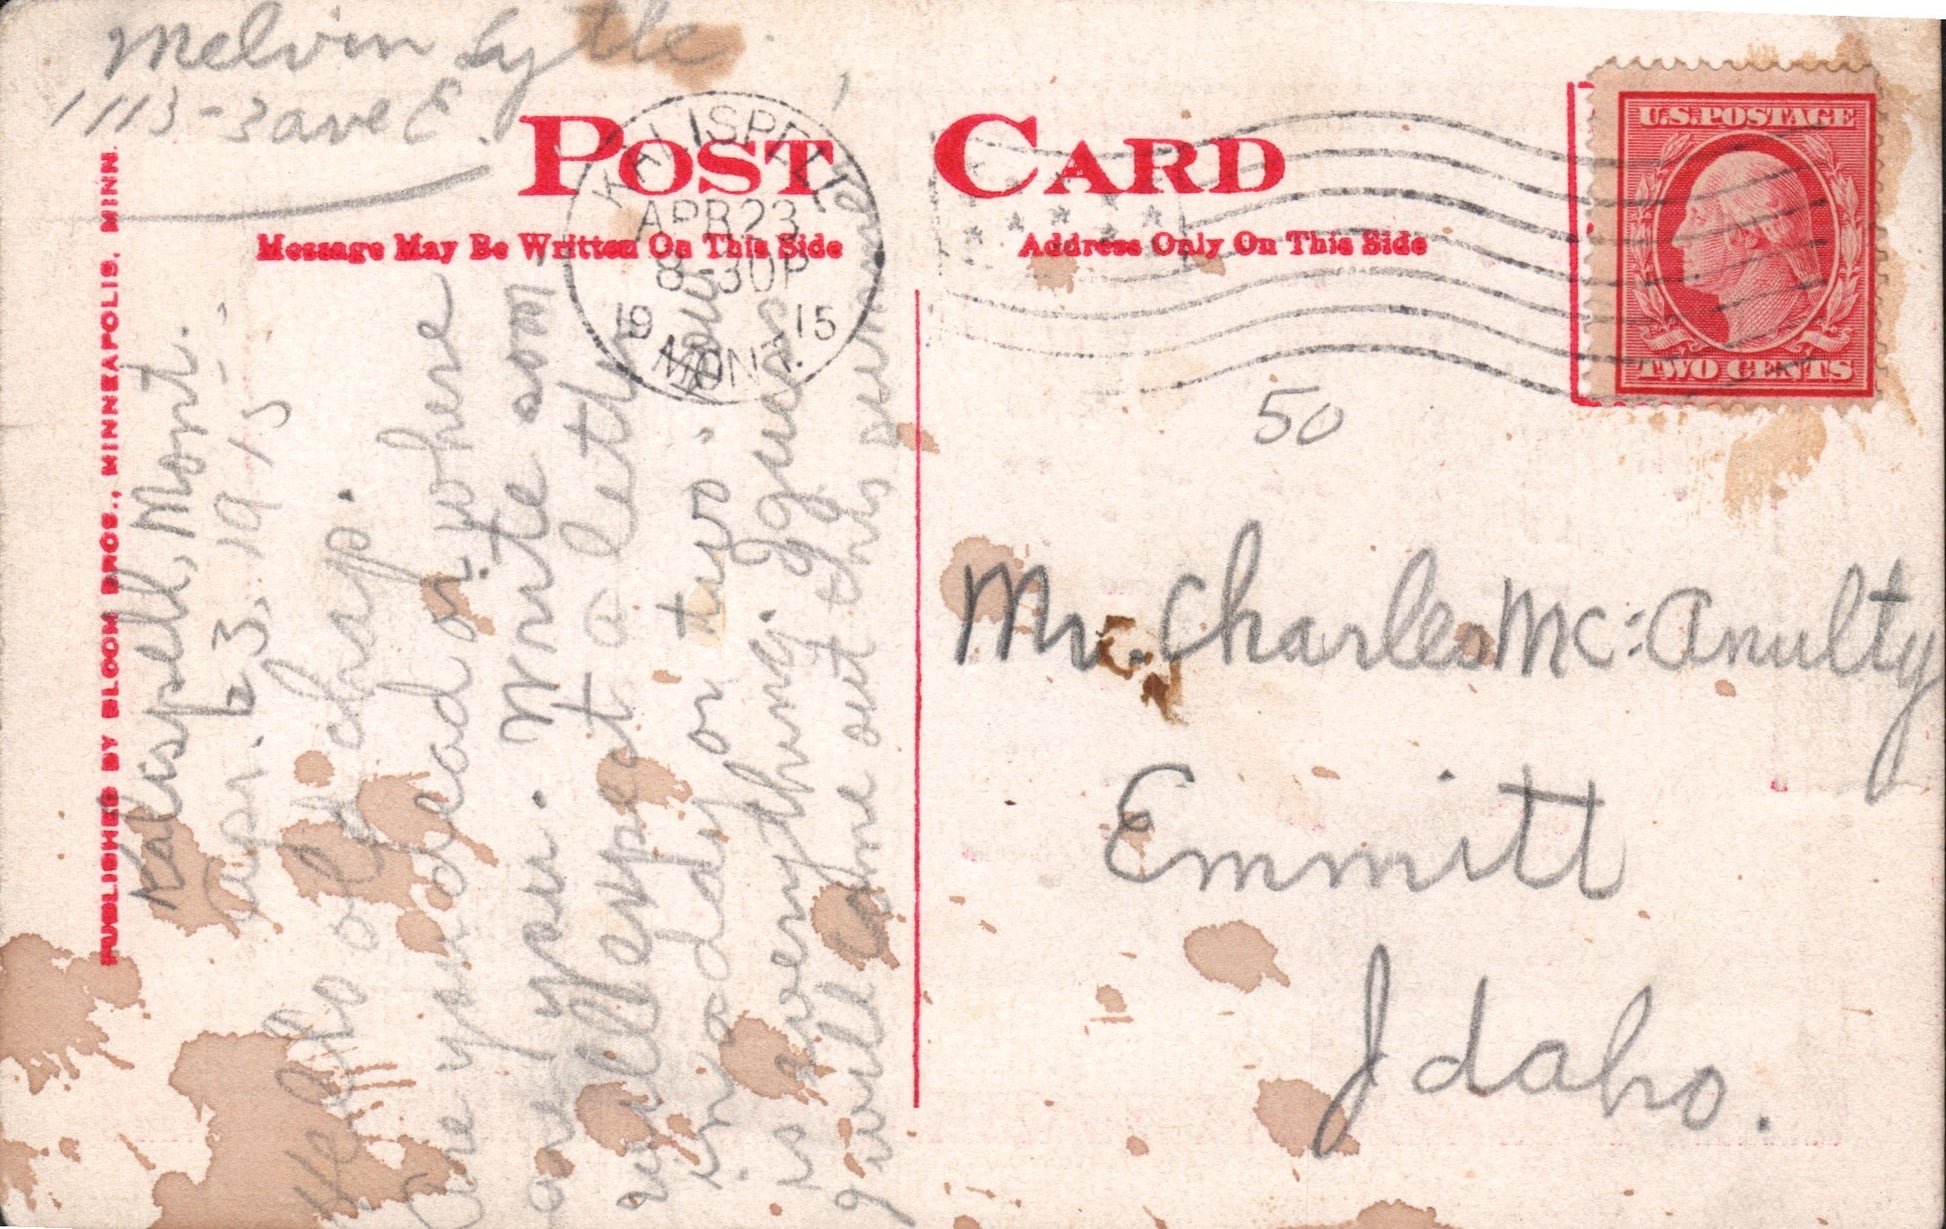 Melvin Lytle,
1113-3 ave E.
POST CARD
Message May Be Written On This Side
Address Only On This Side
KALISPELL
APR 23
8-30P
1915
MONT.
U.S. POSTAGE
TWO CENTS
PUBLISHED BY BLOOM BROS., MINNEAPOLIS, MINN.
Kalispell, Mont.
Apr. 23, 1915
Hello old chap.
Are you dead or where
are you. Write som
will expect a letter
in a day or two. How
is everything. I guess
will come out this
50
Mr. Charles Mc:Anulty
Emmitt
Idaho.